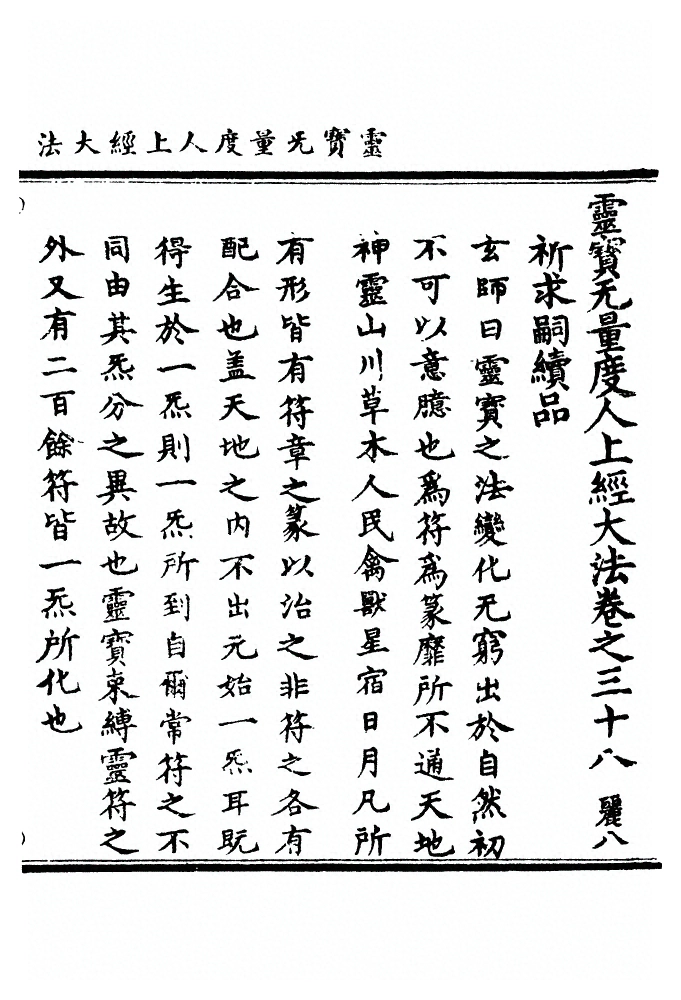 靈寶无量度人上經大法
靈寶无量度人上經大法卷之三十八 麗八
祈求嗣續品
玄師曰靈寶之法變化无窮出於自然初
不可以意臆也爲符爲篆靡所不通天地
神靈山川草木人民禽獸星宿日月凡所
有形皆有符章之篆以治之非符之各有
配合也盖天地之內不出元始一炁耳旣
得生於一炁則一炁所到自爾常符之不
同由其炁分之異故也靈寶束縛靈符之
外又有二百餘符皆一炁所化也